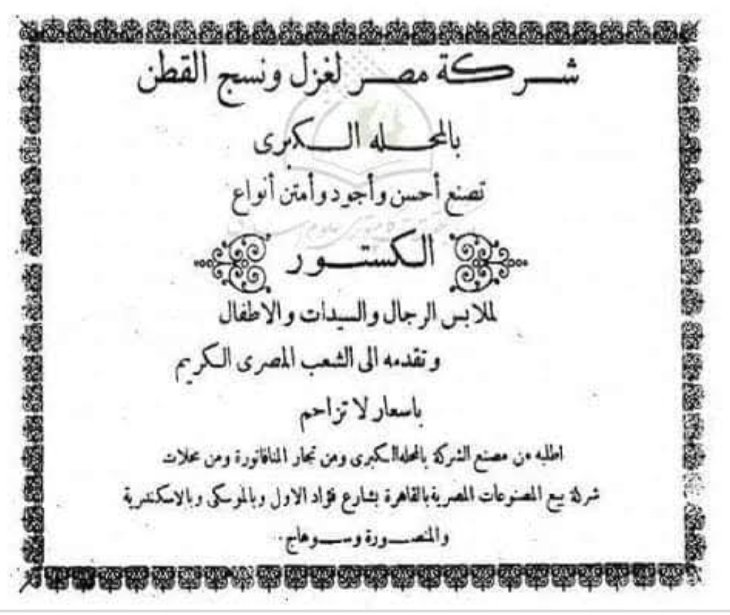 شركة مصر لغزل ونسج القطن
بالمحله الكبرى
تصنع أحسن وأجود وأمتن أنواع
الكستور
لملابس الرجال والسيدات والاطفال
وتقدمه الى الشعب المصرى الكريم
باسعار لا تزاحم
اطلبه من مصنع الشركة بالمحله الكبرى ومن تجار المانافاتورة ومن محلات
شركة بيع المصنوعات المصرية بالقاهرة بشارع فؤاد الاول وبالموسكى وبالاسكندرية
والمنصورة وسوهاج .